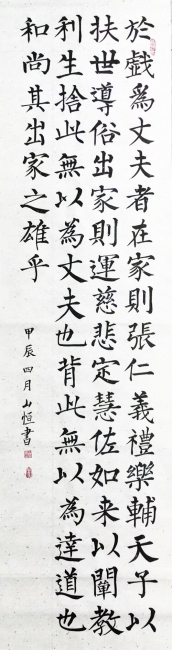 於戲為丈夫者在家則張仁義禮樂輔天子以
扶世導俗出家則運慈悲定慧佐如来以闡教
利生捨此無以為丈夫也背此無以為達道也
和尚其出家之雄乎
甲辰四月山恒書